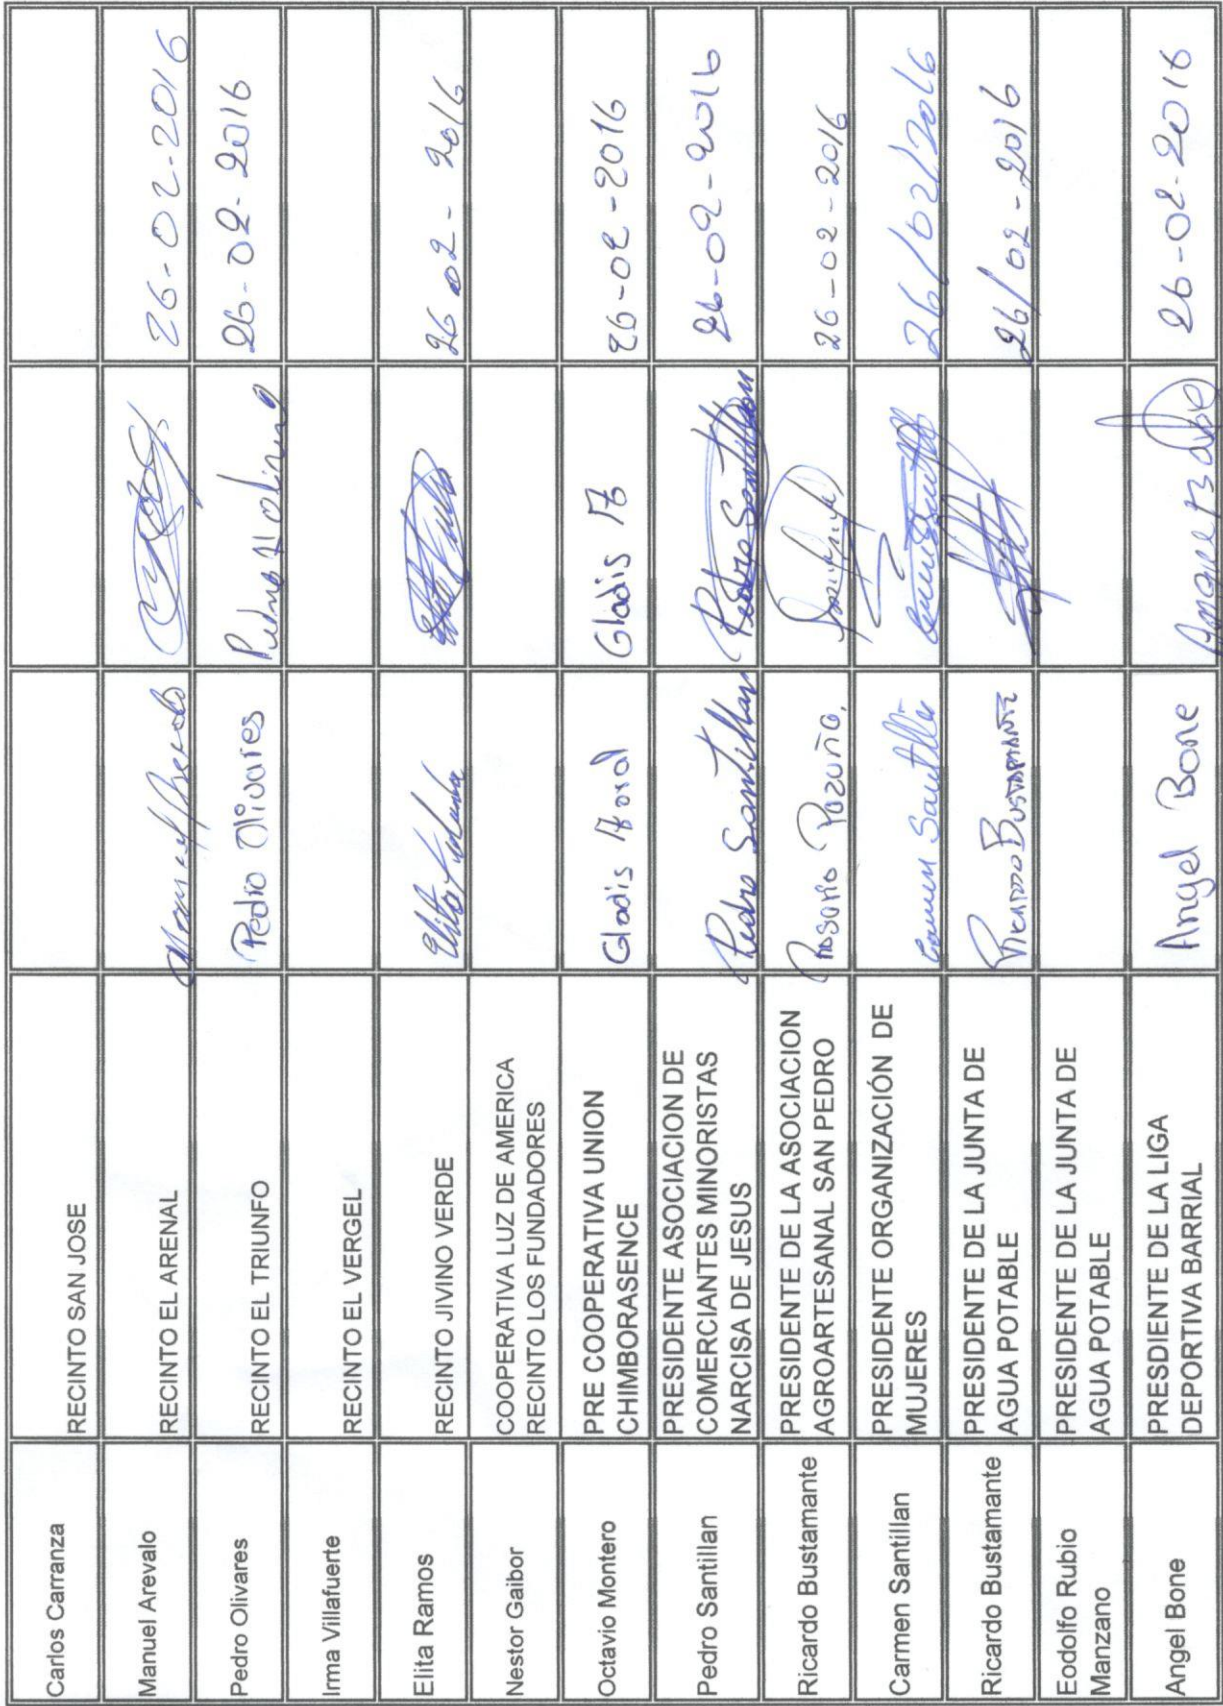 Carlos Carranza
RECINTO SAN JOSE
Manuel Arevalo
RECINTO EL ARENAL
Manuel Arevalo
26-02-2016
Pedro Olivares
RECINTO EL TRIUNFO
Pedro Olivares
26-02-2016
Irma Villafuerte
RECINTO EL VERGEL
Elita Ramos
RECINTO JIVINO VERDE
26 02 - 2016
Nestor Gaibor
COOPERATIVA LUZ DE AMERICA
RECINTO LOS FUNDADORES
Octavio Montero
PRE COOPERATIVA UNION
CHIMBORASENCE
Gladis
Gladis
26-02-2016
Pedro Santillan
PRESIDENTE ASOCIACION DE
COMERCIANTES MINORISTAS
NARCISA DE JESUS
Pedro Santillan
Pedro Santillan
26-02-2016
Ricardo Bustamante
PRESIDENTE DE LA ASOCIACION
AGROARTESANAL SAN PEDRO
Rosario Pazuña.
26-02-2016
Carmen Santillan
PRESIDENTE ORGANIZACIÓN DE
MUJERES
Carmen Santillan
26/02/2016
Ricardo Bustamante
PRESIDENTE DE LA JUNTA DE
AGUA POTABLE
Ricardo Bustamante
26/02-2016
Eodolfo Rubio
Manzano
PRESIDENTE DE LA JUNTA DE
AGUA POTABLE
Angel Bone
PRESDIENTE DE LA LIGA
DEPORTIVA BARRIAL
Angel Bone
26-02-2016